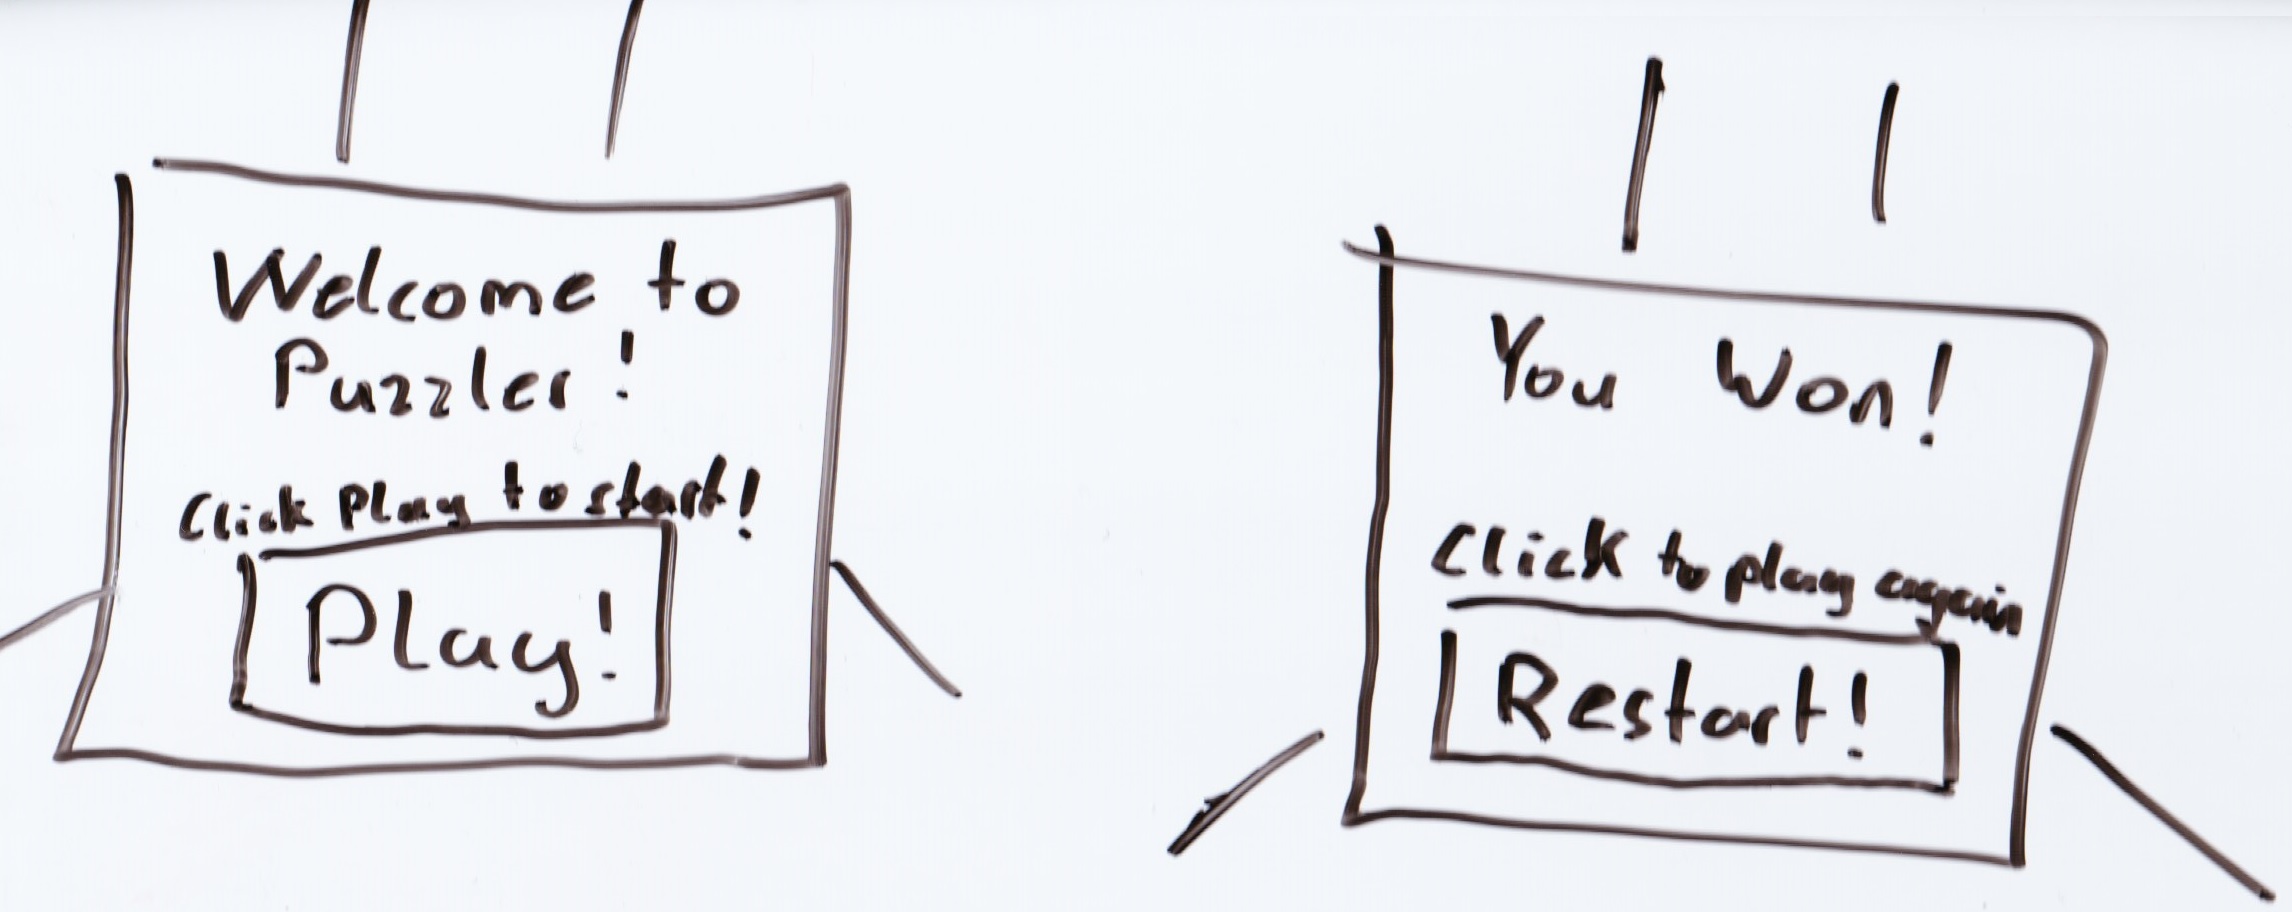 Welcome to
Puzzler!
Click Play to start!
Play!
You Won!
Click to play again
Restart!